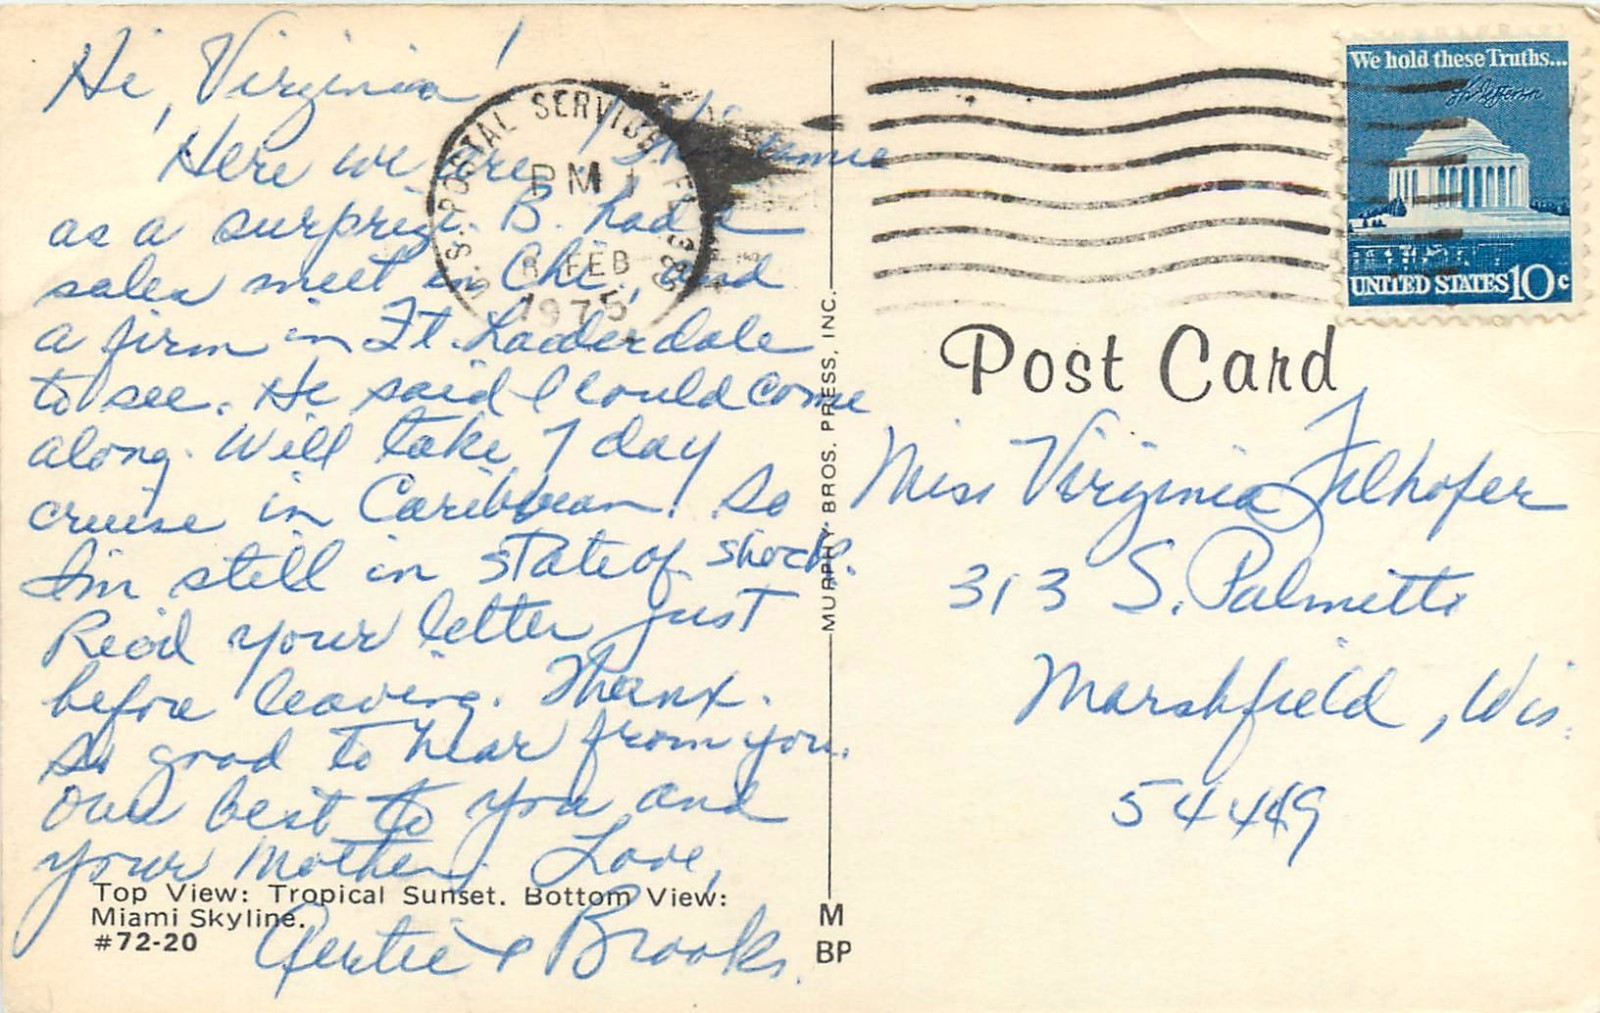 Hi, Virginia!
Here we are! This came
as a surprize. B. had a
sales meet in Chi., and
a firm in Ft. Lauderdale
to see. He said I could come
along. Will take 7 day
cruise in Caribbean! So
I'm still in state of shock.
Rec'd your letter just
before leaving. Thanx.
So good to hear from you.
Our best to you and
your Mother. Love,
Gertie & Brooks.
Top View: Tropical Sunset. Bottom View:
Miami Skyline.
#72-20
U.S. POSTAL SERVICE FL
PM
8 FEB
1975
MURPHY BROS. PRESS, INC.
M
BP
We hold these Truths...
Th Jefferson
UNITED STATES 10c
Post Card
Miss Virginia
313 S. Palmetto
Marshfield, Wis.
54449